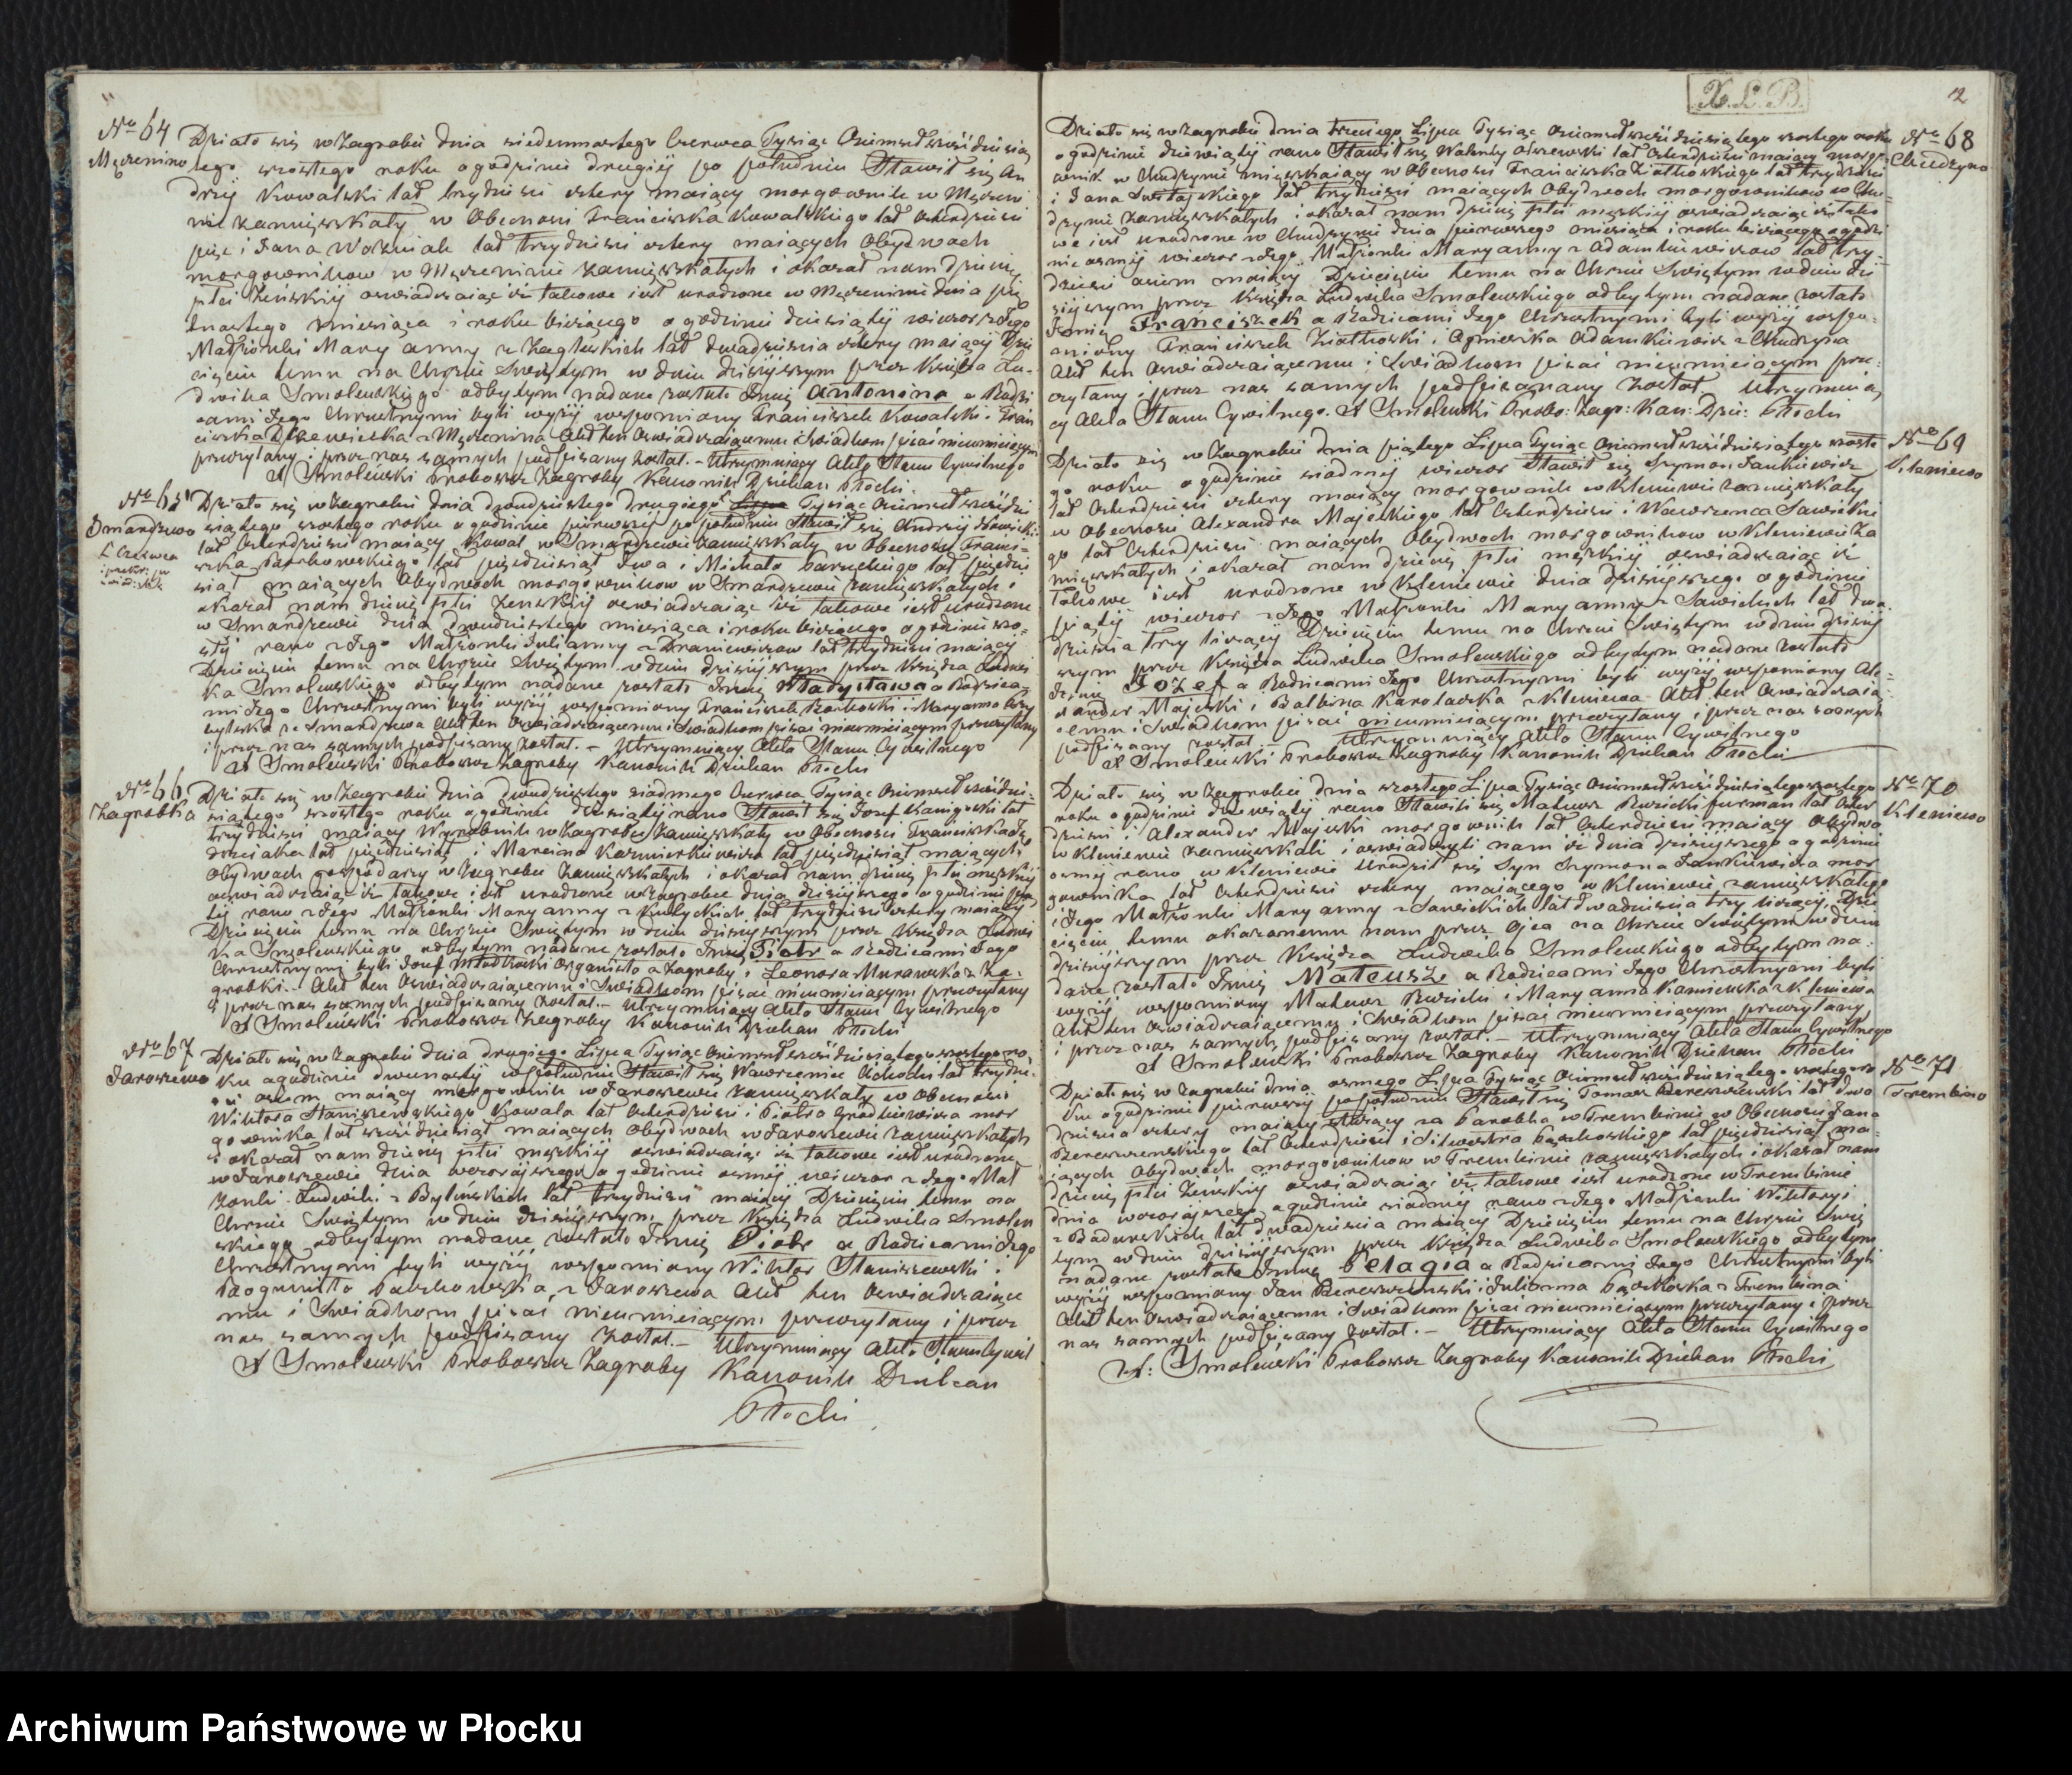 No 64
Męczenino
Działo się w Zagrobie dnia siedemnastego Czerwca Tysiąc Ośmset sześćdziesią
tego szóstego roku o godzinie drugiéj po południu Stawił się An
drzéj Kowalski lat trzydzieści cztery maiący morgownik w Męczeni
nie zamięszkały w Obecności Franciszka Kowalskiego lat czterdzieści
pięć i Jana Woźniak lat trzydzieści cztery maiących Obydwoch
morgowników w Męczeninie zamięszkałych i okazał nam dziécię
płci Żeńskiéj oświadczaiąc iż takowe iest urodzone w Męczeninie dnia pię
tnastego miesiąca i roku bieżącego o godzinie dziesiątéj wieczor z Jego
Małżonki Maryanny z Zagleskich lat dwadzieścia cztery maiącéj Dzie
cięciu temu na Chrzcie Świętym w dniu dzisiéjszym przez Księdza Lu-
dwika Smoleńskiego odbytym nadane zostało Imię Antonina a Rodzi
cami Jego Chrzestnymi byli wyżéj wspomniony Franciszek Kowalski i Fran
ciszka z Męczenina Akt ten Oświadczaiącemu i Świadkom pisać nieumieiącym
przeczytany i przez nas samych podpisany został. – Utrzymuiący Akta Stanu Cywilnego
X Smoleński Proboszcz Zagroby Kanonik Dziekan Płocki.
No 65
Smardzewo
Działo się w Zagrobie dnia dwudziestego drugiego Lipca Tysiąc Ośmset sześćdzie
siątego szóstego roku o godzinie pierwszéj po południu Stawił się Andrzéj Nowicki
lat czterdzieści maiący Kowal w Smardzewie zamięszkały w Obecności Franci-
szka Borkowskiego lat pięćdziesiąt dwa i Michała lat pięćdzie
siąt maiących Obydwoch morgowników w Smardzewie zamięszkałych i
okazał nam dziécię płci Żeńskiéj oświadczaiąc iż takowe iest urodzone
w Smardzewie dnia dwudziestego miesiąca i roku bieżącego o godzinie szó-
stéj rano z Jego Małżonki Julianny z lat trzydzieści maiącéj
Dziecięciu temu na Chrzcie Świętym w dniu dzisiéjszym przez Księdza Ludwi
ka Smoleńskiego odbytym nadane zostało Imię Władysława a Rodzica
mi Jego Chrzestnymi byli wyżéj wspomniony Franciszek Borkowski i Maryanna
z Smardzewa Akt ten Oświadczaiącemu i Świadkom pisać nieumieiącym przeczytany
i przez nas samych podpisany został. – Utrzymuiący Akta Stanu Cywilnego
X Smoleński Proboszcz Zagroby Kanonik Dziekan Płocki
No 66
Zagrobka
Działo się w Zagrobie dnia dwudziestego siódmego Czerwca Tysiąc Ośmset sześćdzie-
siątego szóstego roku o godzinie dziesiątéj rano Stawił się Josef lat
trzydzieści maiący Wyrobnik w Zagrobie zamięszkały w Obecności Franciszka
lat pięćdziesiąt i Marcina Kazmierkiewicza lat pięćdziesiąt maiących
Obydwoch gospodarzy w Zagrobie zamięszkałych i okazał nam dziécię płci męzkiéj
oświadczaiąc iż takowe iest urodzone w Zagrobce dnia dzisiéjszego o godzinie
rano z Jego Małżonki Maryanny z lat trzydzieści cztery maiącéj
Dziecięciu temu na Chrzcie Świętym w dniu dzisiéjszym przez Księdza Ludwi
ka Smoleńskiego odbytym nadane zostało Imię Piotr a Rodzicami Jego
Chrzestnymi byli Josef Organista z Zagroby i Leonora Murawska z Za-
grobki. – Akt ten Oświadczaiącemu i Świadkom pisać nieumieiącym przeczytany
i przez nas samych podpisany został. – Utrzymuiący Akta Stanu Cywilnego
X Smoleński Proboszcz Zagroby Kanonik Dziekan Płocki
No 67
Jaroszewo
Działo się w Zagrobie dnia drugiego Lipca Tysiąc Ośmset sześćdziesiątego szóstego ro
ku o godzinie dwunastéj w południe Stawił się Wawrzeniec Cichocki lat trzydzie-
ści ośm maiący morgownik w Jaroszewie zamięszkały w Obecności
Wiktora Staniszewskiego Kowala lat czterdzieści i Piotra mor
gownika lat sześćdziesiąt maiących Obydwoch w Jaroszewie zamięszkałych
i okazał nam dziécię płci męzkiéj oświadczaiąc iż takowe iest urodzone
w Jaroszewie dnia wczorajszego o godzinie ósméj wieczor z Jego Mał
żonki Ludwiki z Bylińskich lat trzydzieści maiącéj Dziecięciu temu na
Chrzcie Świętym w dniu dzisiéjszym przez Księdza Ludwika Smoleń
skiego odbytym nadane zostało Imię Piotr a Rodzicami Jego
Chrzestnymi byli wyżéj wspomniony Wiktor Staniszewski i
Bogumiła z Jaroszewa Akt ten Oświadczaiące
mu i Świadkom pisać nieumieiącym przeczytany i przez
nas samych podpisany został. – Utrzymuiący Akta Stanu Cywil
X Smoleński Proboszcz Zagroby Kanonik Dziekan
Płocki
X. L. B.
12
No 68
Chudzyno
Działo się w Zagrobie dnia trzeciego Lipca Tysiąc Ośmset sześćdziesiątego szóstego roku
o godzinie dziewiątéj rano Stawił się Walenty Olszewski lat czterdzieści maiący morgo
wnik w Chudzynie zamięszkaiący w Obecności Franciszka Ziółkowskiego lat trzydzieści
i Jana lat trzydzieści maiących Obydwoch morgowników w Chu-
dzynie zamięszkałych i okazał nam dziécię płci męzkiéj oświadczaiąc iż tako
we iest urodzone w Chudzynie dnia pierwszego miesiąca i roku bieżącego o godzi
nie ósméj wieczor z Jego Małżonki Maryanny z Adamkiewiczow lat trzy-
dzieści ośm maiącéj Dziecięciu temu na Chrzcie Świętym w dniu dzi
siéjszym przez Księdza Ludwika Smoleńskiego odbytym nadane zostało
Imię Franciszek a Rodzicami Jego Chrzestnymi byli wyżéj wspo-
mniony Franciszek Ziółkowski i Agnieszka Adamkiewicz z Chudzyna
Akt ten Oświadczaiącemu i Świadkom pisać nieumieiącym prze-
czytany i przez nas samych podpisany został Utrzymuią
cy Akta Stanu Cywilnego. X Smoleński Probo: Zago: Kan: Dzie: Płocki
No 69
Kleniewo
Działo się w Zagrobie dnia piątego Lipca Tysiąc Ośmset sześćdziesiątego szóste
go roku o godzinie siódméj wieczor Stawił się Szymon Jankiewicz
lat czterdzieści cztery maiący morgownik w Kleniewie zamięszkały
w Obecności Alexandra Majeskiego lat czterdzieści i Wawrzenca Sawickie
go lat czterdzieści maiących Obydwoch morgowników w Kleniewie za
mięszkałych i okazał nam dziécię płci męzkiéj oświadczaiąc iż
takowe iest urodzone w Kleniewie dnia dzisiéjszego o godzinie
piątéj wieczor z Jego Małżonki Maryanny z Sawickich lat dwa-
dzieścia trzy liczącéj Dziecięciu temu na Chrzcie Świętym w dniu dzisiéj
szym przez Księdza Ludwika Smoleńskiego odbytym nadane zostało
Imię Jozef a Rodzicami Jego Chrzestnymi byli wyżéj wspomniony Ale
xander Majeski i Balbina Karolaska z Kleniewa Akt ten Oświadczaią
cemu i Świadkom pisać nieumieiącym przeczytany i przez nas samych
podpisany został. – Utrzymuiący Akta Stanu Cywilnego
X Smoleński Proboszcz Zagroby Kanonik Dziekan Płocki
No 70
Kleniewo
Działo się w Zagrobie dnia szóstego Lipca Tysiąc Ośmset sześćdziesiątego szóstego
roku o godzinie dziewiątéj rano Stawili się Mateusz Ruzicki furman lat czter
dzieści i Alexander Majeski morgownik lat czterdzieści maiący Obydwa
w Kleniewie zamięszkali i oświadczyli nam iż dnia dzisiéjszego o godzinie
ósméj rano w Kleniewie Urodził się Syn Szymona Jankiewicza mor
gownika lat czterdzieści cztery maiącego w Kleniewie zamięszkałego
i Jego Małżonki Maryanny z Sawickich lat dwadzieścia trzy liczącéj Dzie
cięciu temu okazanemu nam przez Ojca na Chrzcie Świętym w dniu
dzisiéjszym przez Księdza Ludwika Smoleńskiego odbytym na-
dane zostało Imię Mateusz a Rodzicami Jego Chrzestnymi byli
wyżéj wspomniony Mateusz Ruzicki i Maryanna Kamieńska z Kleniewa
Akt ten Oświadczaiącemu i Świadkom pisać nieumieiącym przeczytany
i przez nas samych podpisany został. – Utrzymuiący Akta Stanu Cywilnego
X Smoleński Proboszcz Zagroby Kanonik Dziekan Płocki
No 71
Trembino
Działo się w Zagrobie dnia ósmego Lipca Tysiąc Ośmset sześćdziesiątego szóstego ro
ku o godzinie pierwszéj po południu Stawił się Tomasz lat dwa
dzieścia cztery maiący służący za Parobka w Trembinie w Obecności Jana
lat czterdzieści i Silwestra lat pięćdziesiąt ma-
iących Obydwoch morgowników w Trembinie zamięszkałych i okazał nam
dziécię płci Żeńskiéj oświadczaiąc iż takowe iest urodzone w Trembinie
dnia wczorajszego o godzinie siódméj rano z Jego Małżonki Wiktoryi
z Badurskich lat dwadzieścia maiącéj Dziecięciu temu na Chrzcie Świę
tym w dniu dzisiéjszym przez Księdza Ludwika Smoleńskiego odbytym
nadane zostało Imię Pelagia a Rodzicami Jego Chrzestnymi byli
wyżéj wspomniony Jan i Julianna z Trembina
Akt ten Oświadczaiącemu i Świadkom pisać nieumieiącym przeczytany i przez
nas samych podpisany został. – Utrzymuiący Akta Stanu Cywilnego
X: Smoleński Proboszcz Zagroby Kanonik Dziekan Płocki
Archiwum Państwowe w Płocku